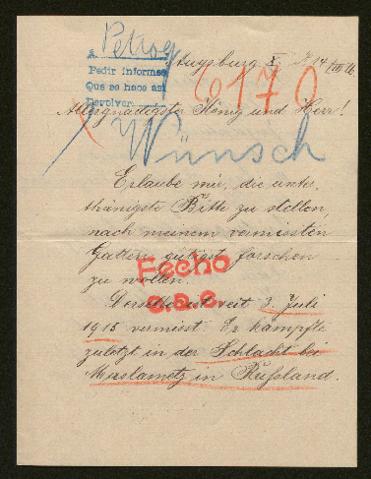 A Petrog
Pedir informes
Que se hace así
Devolver
Augsburg X. 14/VIII 16.
6170
Allergnädigster König und Herr!
Wünsch
Erlaube mir, die unter,
thänigste Bitte zu stellen,
nach meinem vermissten
Gatten gütigst forschen
zu wollen.
Fecho
Derselbe ist seit 3. Juli
c.a.c.
1915 vermisst. Er kämpfte
zuletzt in der Schlacht bei
Maslametz in Rußland.